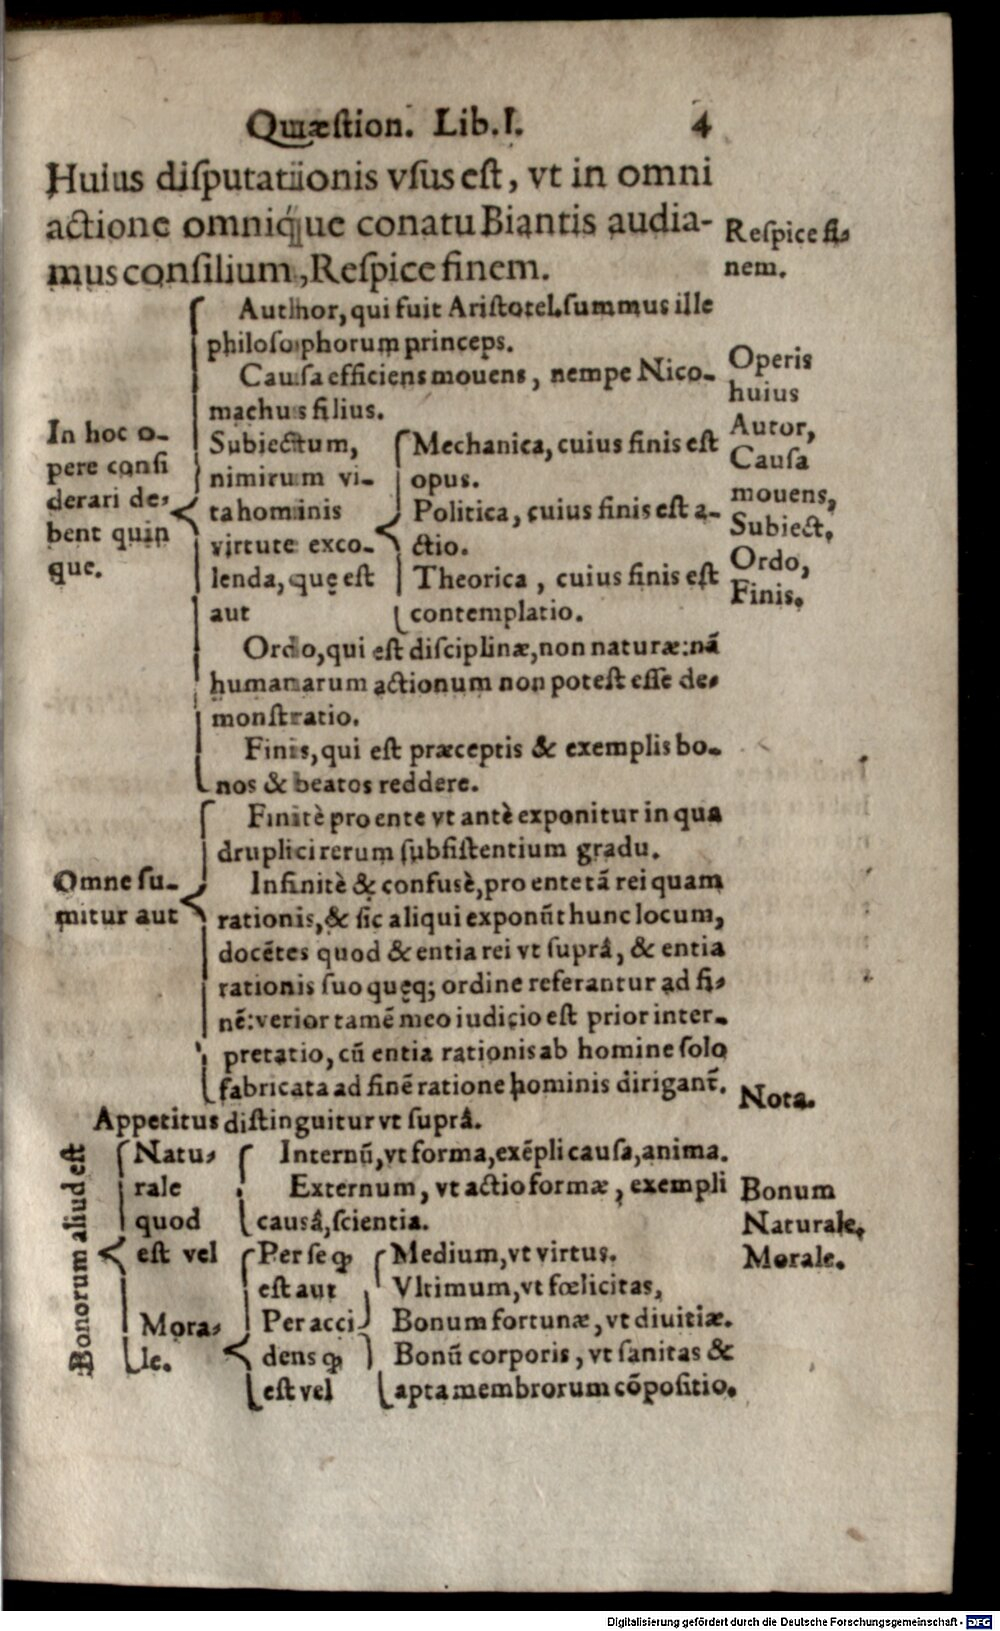 Quæstion. Lib. I. 4
Huius disputationis vsus est, vt in omni
actione omnique conatu Biantis audia-
mus consilium, Respice finem.
Respice fi-
nem.
In hoc o-
pere consi
derari de-
bent quin
que.
Author, qui fuit Aristotel. summus ille
philosophorum princeps.
Causa efficiens mouens, nempe Nico-
machus filius.
Subiectum,
nimirum vi-
ta hominis
virtute exco-
lenda, quę est
aut
Mechanica, cuius finis est
opus.
Politica, cuius finis est a-
ctio.
Theorica, cuius finis est
contemplatio.
Ordo, qui est disciplinæ, non naturæ: nã
humanarum actionum non potest esse de-
monstratio.
Finis, qui est præceptis & exemplis bo-
nos & beatos reddere.
Operis
huius
Autor,
Causa
mouens,
Subiect,
Ordo,
Finis.
Omne su-
mitur aut
Finitè pro ente vt antè exponitur in qua
druplici rerum subsistentium gradu.
Infinitè & confusè, pro ente tã rei quam
rationis, & sic aliqui exponũt hunc locum,
docẽtes quod & entia rei vt suprâ, & entia
rationis suo quęq; ordine referantur ad fi-
nẽ: verior tamẽ meo iudicio est prior inter-
pretatio, cũ entia rationis ab homine solo
fabricata ad finẽ ratione hominis dirigant̃.
Nota.
Appetitus distinguitur vt suprâ.
Bonorum aliud est
Natu-
rale
quod
est vel
Internũ, vt forma, exẽpli causa, anima.
Externum, vt actio formæ, exempli
causâ, scientia.
Mora-
le.
Per se qƺ
est aut
Per acci
dens qƺ
est vel
Medium, vt virtus.
Vltimum, vt fœlicitas,
Bonum fortunæ, vt diuitiæ.
Bonũ corporis, vt sanitas &
apta membrorum cõpositio.
Bonum
Naturale,
Morale.
Digitalisierung gefördert durch die Deutsche Forschungsgemeinschaft - DFG